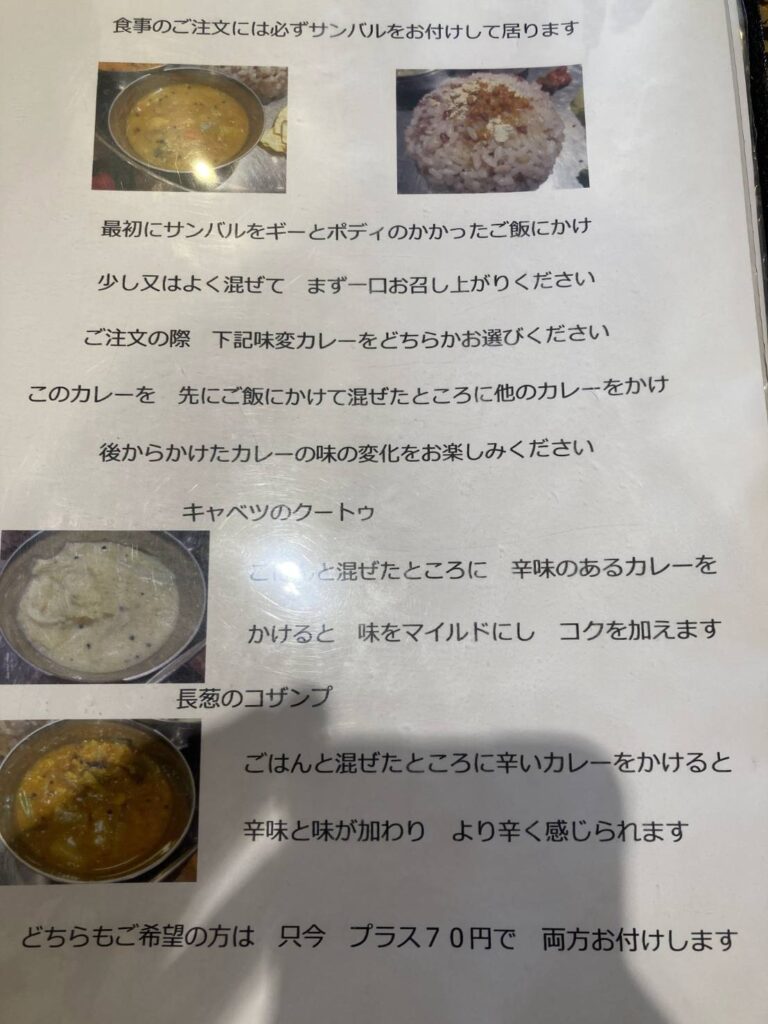 食事のご注文には必ずサンバルをお付けして居ります
最初にサンバルをギーとポディのかかったご飯にかけ
少し又はよく混ぜて　まず一口お召し上がりください
ご注文の際　下記味変カレーをどちらかお選びください
このカレーを　先にご飯にかけて混ぜたところに他のカレーをかけ
後からかけたカレーの味の変化をお楽しみください
キャベツのクートゥ
ごはんと混ぜたところに　辛味のあるカレーを
かけると　味をマイルドにし　コクを加えます
長葱のコザンプ
ごはんと混ぜたところに辛いカレーをかけると
辛味と味が加わり　より辛く感じられます
どちらもご希望の方は　只今　プラス７０円で　両方お付けします